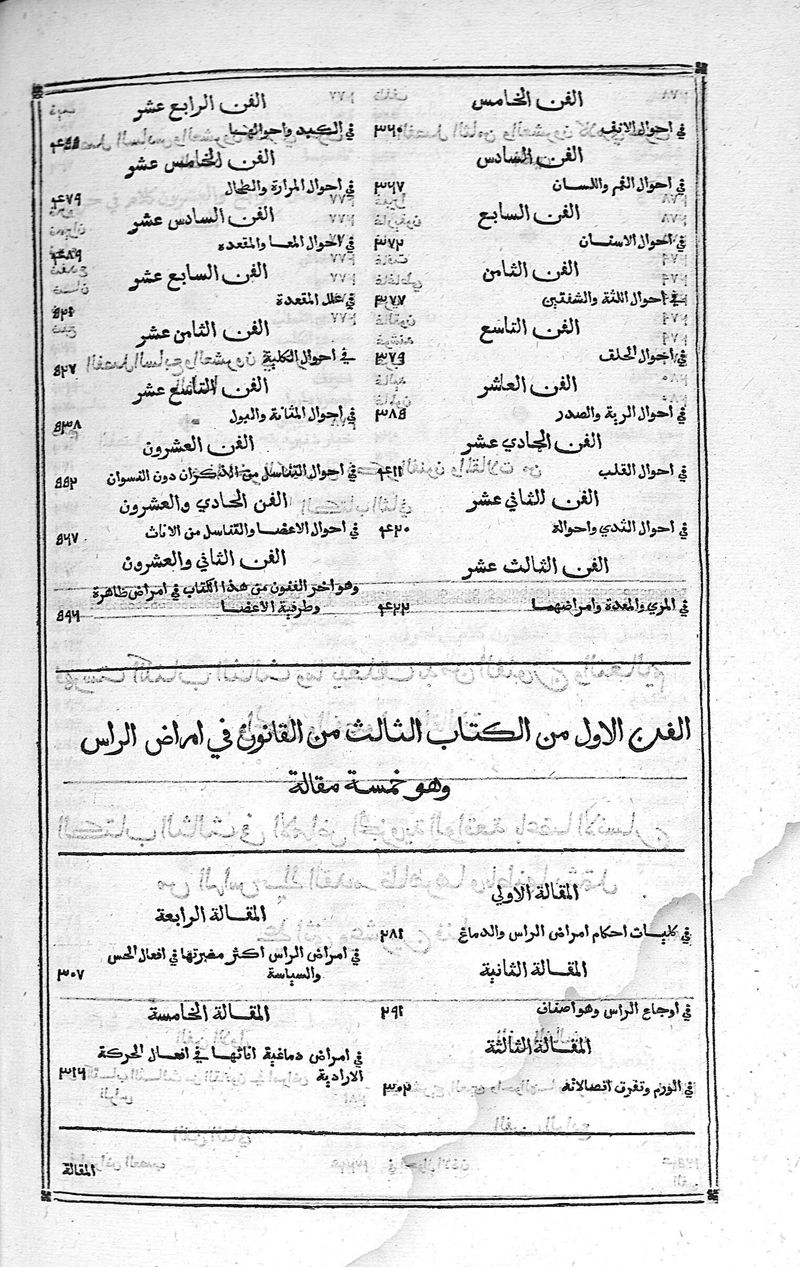 الفن الخامس
في احوال الانف ٣٦٠
الفن السادس
في احوال الفم واللسان ٣٦٧
الفن السابع
في احوال الاسنان ٣٧٢
الفن الثامن
في احوال اللثة والشفتين ٣٧٧
الفن التاسع
في احوال الحلف ٣٧٩
الفن العاشر
في احوال الرية والصدر
الفن الحادي عشر
في احوال القلب
الفن الثاني عشر
في احوال الثدي واحواله ٤٢٠
الفن الثالث عشر
في المري والمعدة وامراضهما ٤٢٢
الفن الرابع عشر
في الكبد واحوالها
الفن الخامس عشر
في احوال المرارة والطحال ٤٧٩
الفن السادس عشر
في احوال المعا والمقعدة
الفن السابع عشر
في علل المقعدة
الفن الثامن عشر
في احوال الكلية ٥٢٧
الفن التاسع عشر
في احوال المثانة والبول ٥٣٨
الفن العشرون
في احوال التناسل من الذكران دون النسوان ٥٥٢
الفن الحادي والعشرون
في احوال الاعضا والتناسل من الاناث ٥٦٧
الفن الثاني والعشرون
وهو اخر الفنون من هذا الكتاب في امراض ظاهرة
وطرفية الاعضا ٥٩٦
الفن الاول من الكتاب الثالث من القانون في امراض الراس
وهو خمسة مقالة
المقالة الاولي
في كليات احكام امراض الراس والدماغ ٢٨١
المقالة الثانية
في اوجاع الراس وهو اصناف ٢٩١
المقالة الثالثة
في الورم وتفرق اتصالاته ٣٠٢
المقالة الرابعة
في امراض الراس اكثر مضرتها في افعال الحس
والسياسة ٣٠٧
المقالة الخامسة
في امراض دماغية افاتها في افعال الحركة
الارادية ٣١٦
المقالة